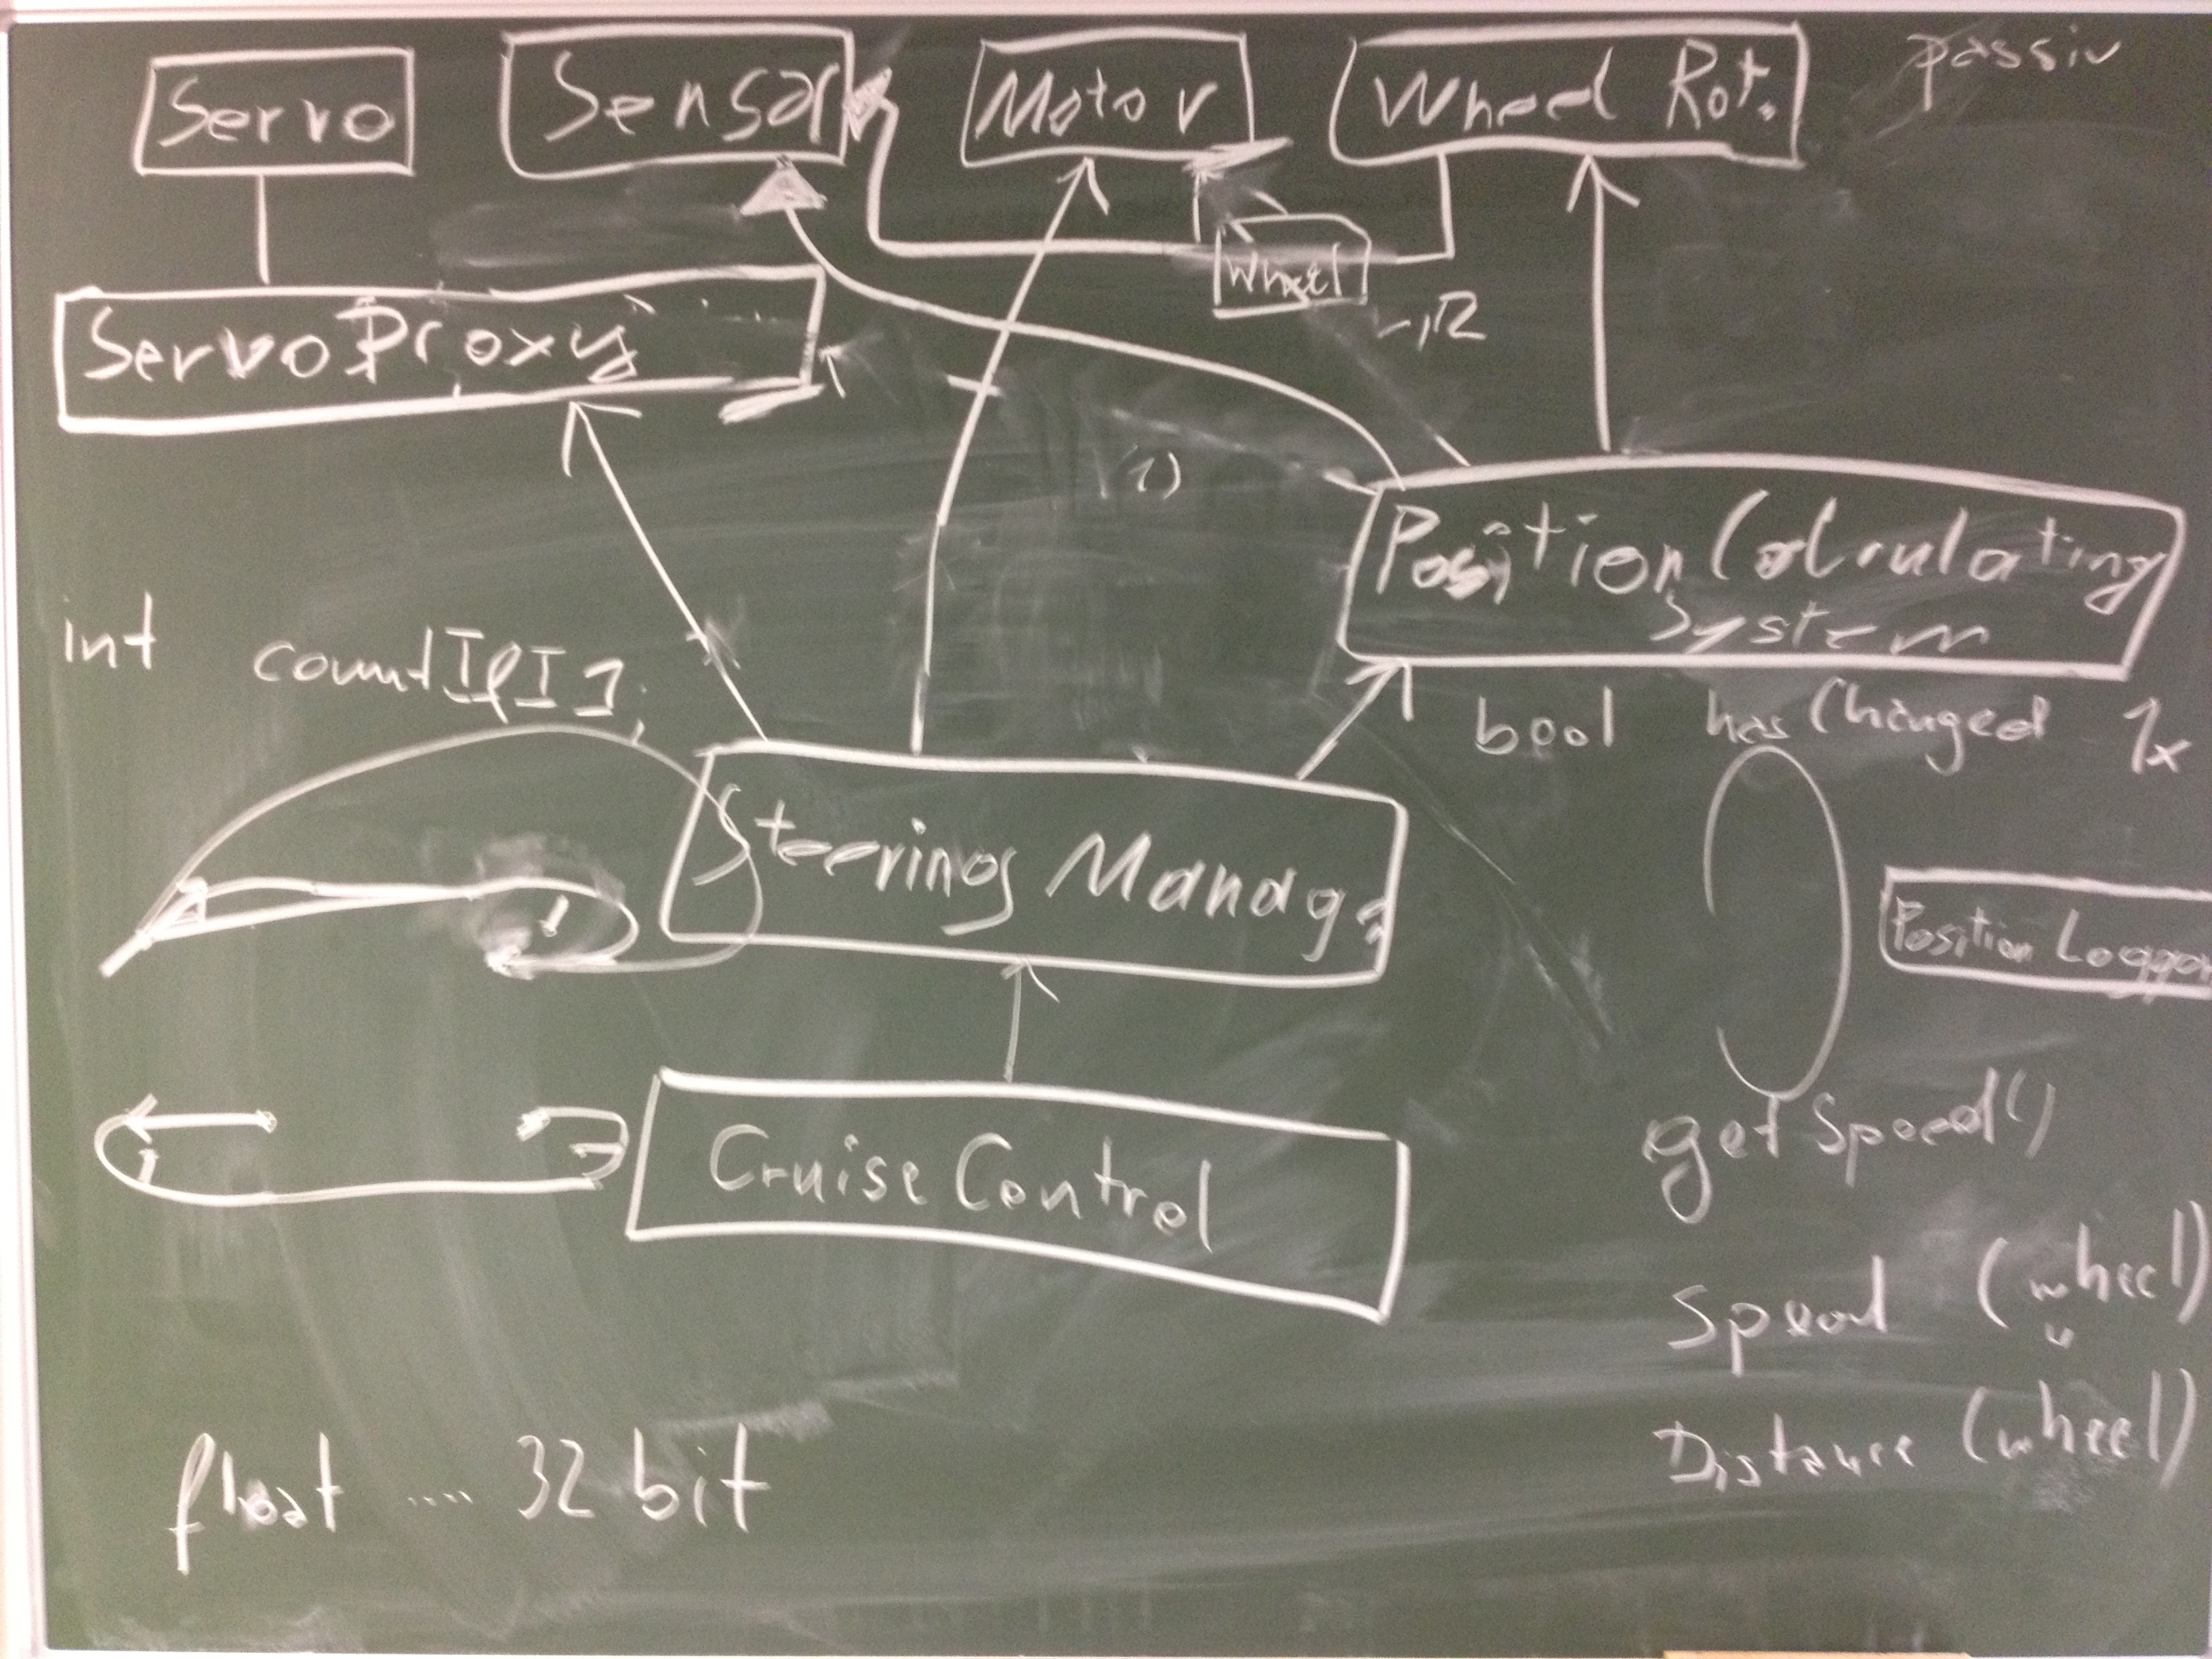 Servo
Sensor
Motor
Wheel Rot.
passiv
Wheel
ServoProxy
1)
Position Calculating
System
int countIf[];
bool hasChanged 1x
Steering Manag
Position Logger
Cruise Control
getSpeed()
Speed (wheel)
Distance (wheel)
float .... 32 bit